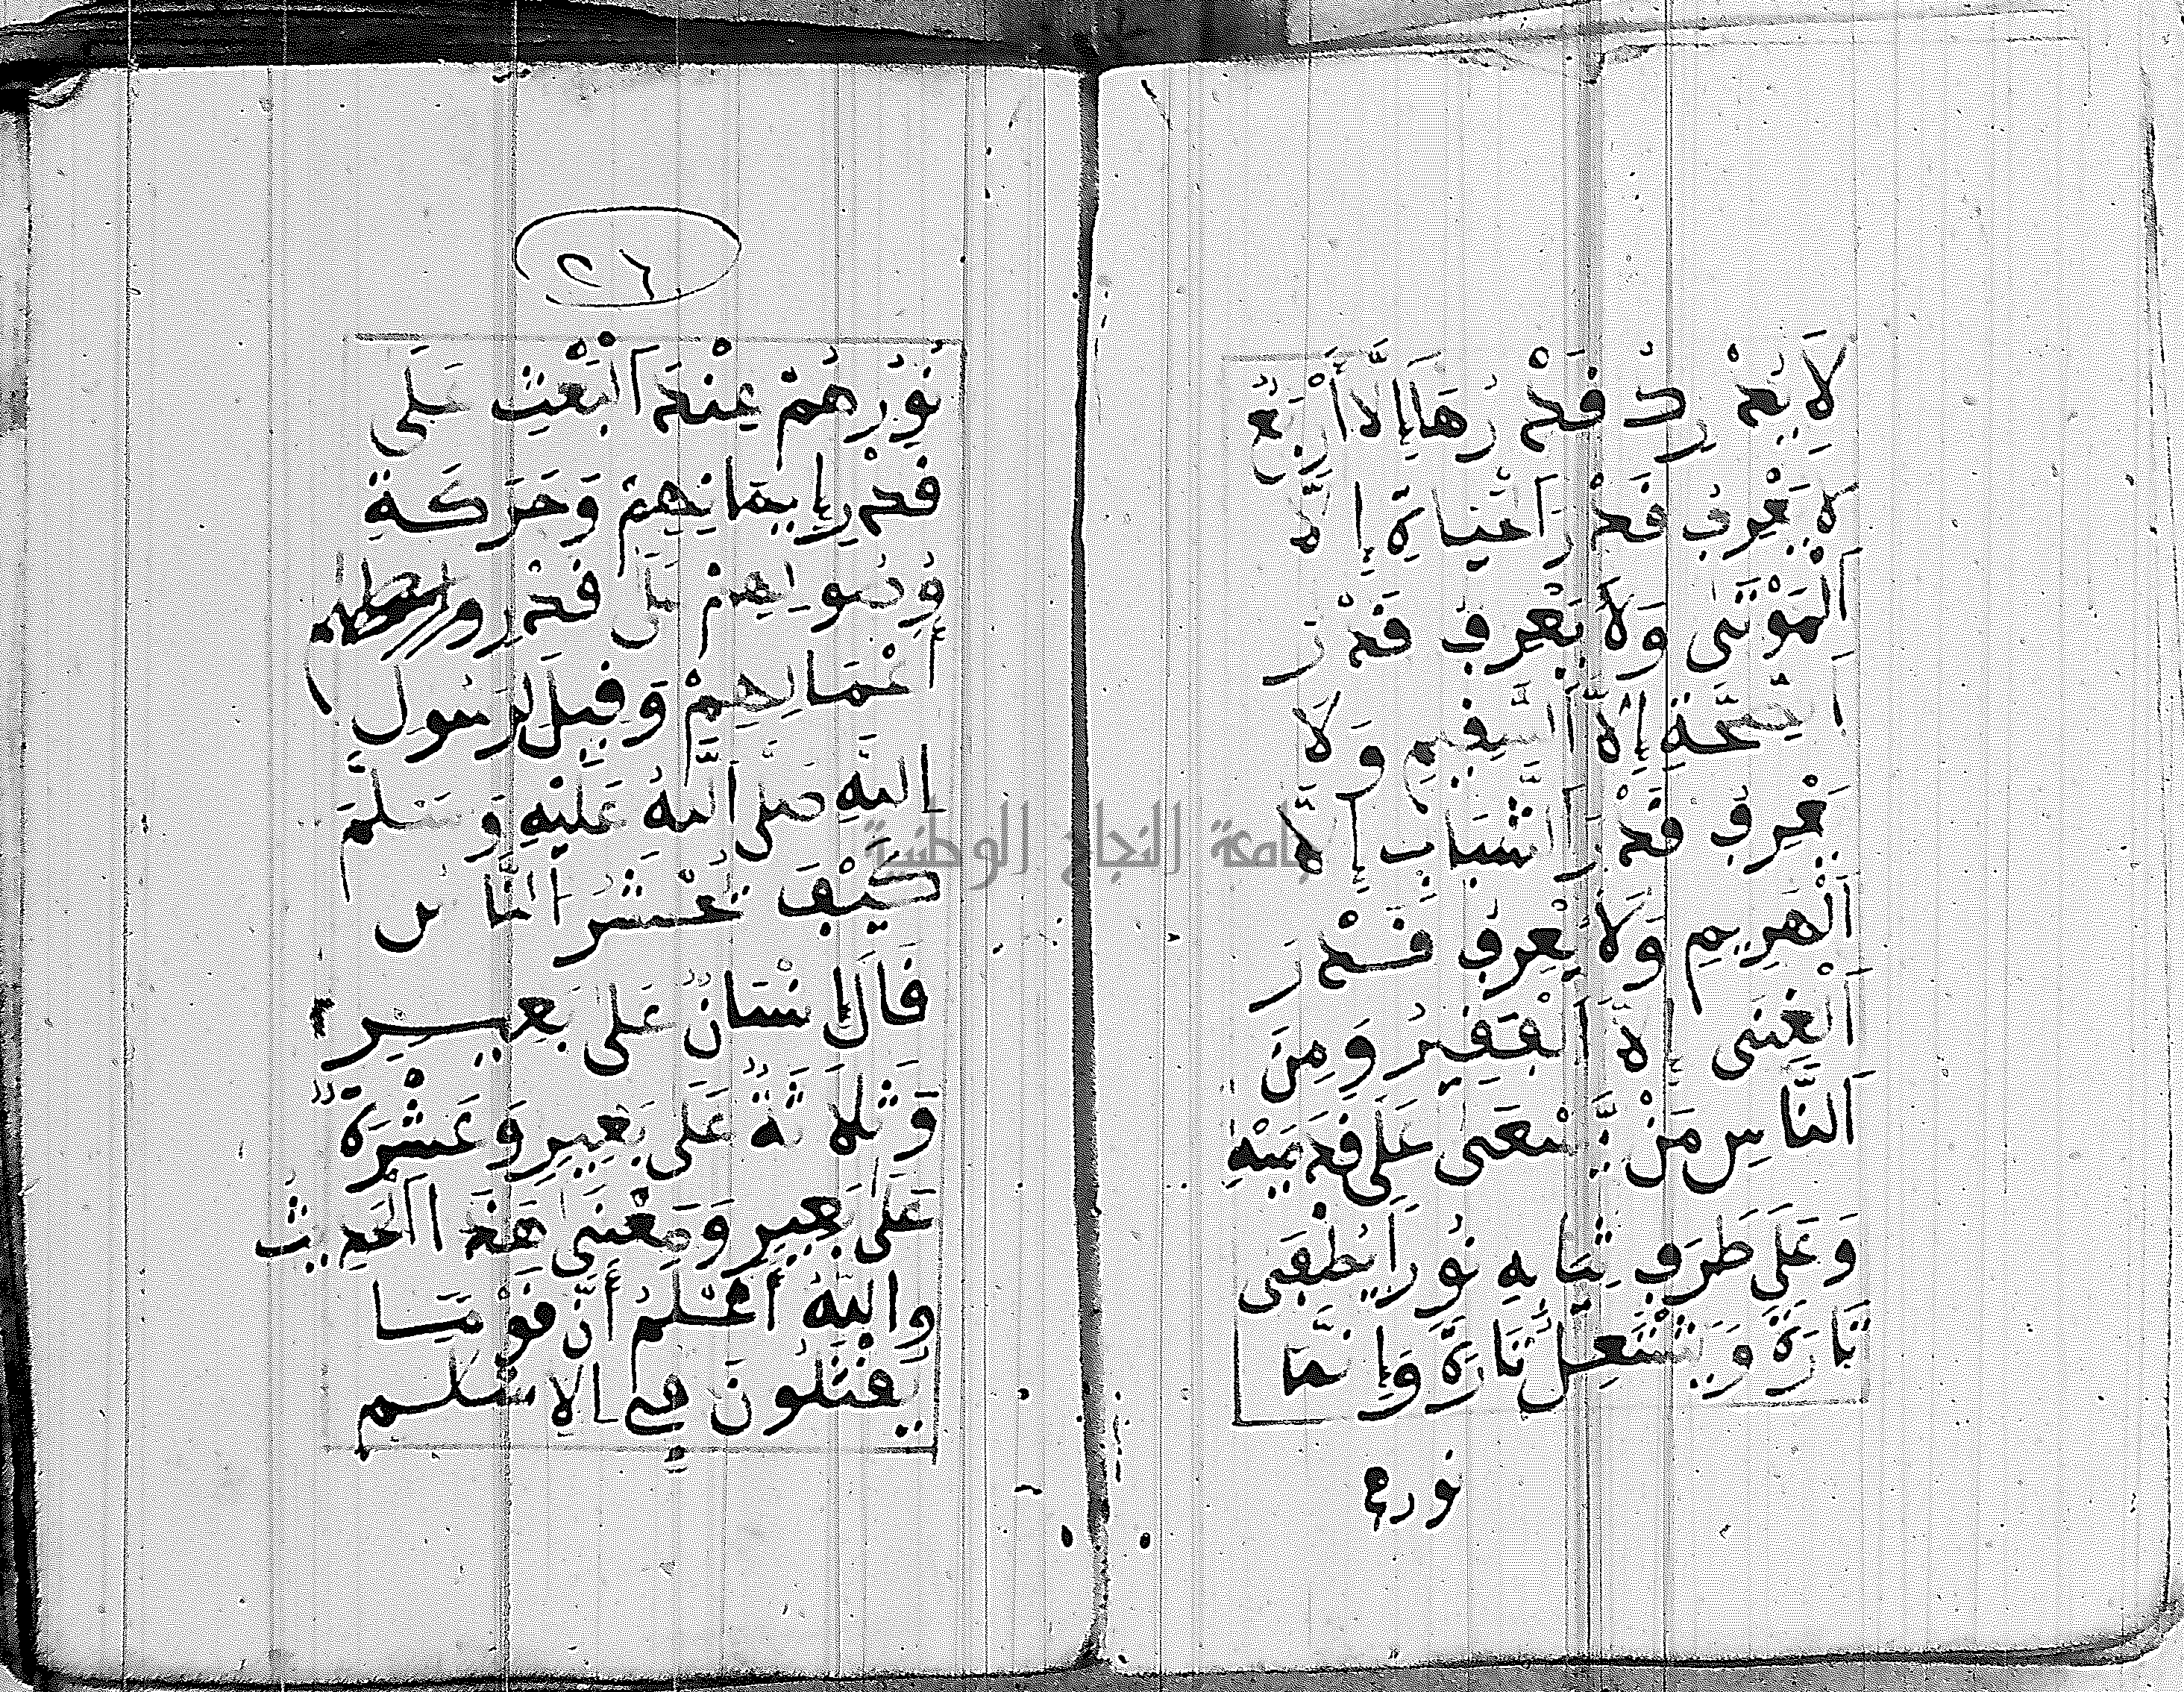 لَا يُعْرَفُ قَدْرُهَا إِلَّا أَرْبَعٌ
لَا يَعْرِفُ قَدْرَ الْحَيَاةِ إِلَّا
الْمَوْتَى وَلَا يَعْرِفُ قَدْرَ
الصِّحَّةِ إِلَّا السَّقِيمِ وَلَا
يَعْرِفُ قَدْرَ الشَّبَابِ إِلَّا
الْهَرِيمِ وَلَا يَعْرِفُ قَدْرَ
الْغِنَى إِلَّا الْفَقِيرُ وَمِنَ
النَّاسِ مَنْ يَّسْعَى عَلَى قَدَمَيْهِ
وَعَلَى طَرَفِ ثِيَابِهِ نُورًا يُطْفَى
تَارَةً وَيَشْتَعِلُ تَارَةً وَإِنَّمَا
نورهم
٢٦
نُورُهُمْ عِنْدَ الْبَعْثِ عَلَى
قَدْرِ إِيمَانِهِمْ وَحَرَكَةِ
عَلَى قَدْرِ
أَعْمَالِهِمْ وَقِيلَ لِرَسُولِ
اللَّهِ صَلَّى اللَّهُ عَلَيْهِ وَسَلَّمَ
كَيْفَ تُحْشَرُ النَّاسُ
قَالَ إِنْسَانٌ عَلَى بَعِيرٍ
وَثَلَاثَةٌ عَلَى بَعِيرٍ وَعَشْرَةٌ
عَلَى بَعِيرٍ وَمَعْنَى هَذَا الْحَدِيث
وَاللَّهُ أَعْلَمُ أَنَّ قَوْمًا
فِي الْإِسْلَم
جامعة النجاح الوطنية